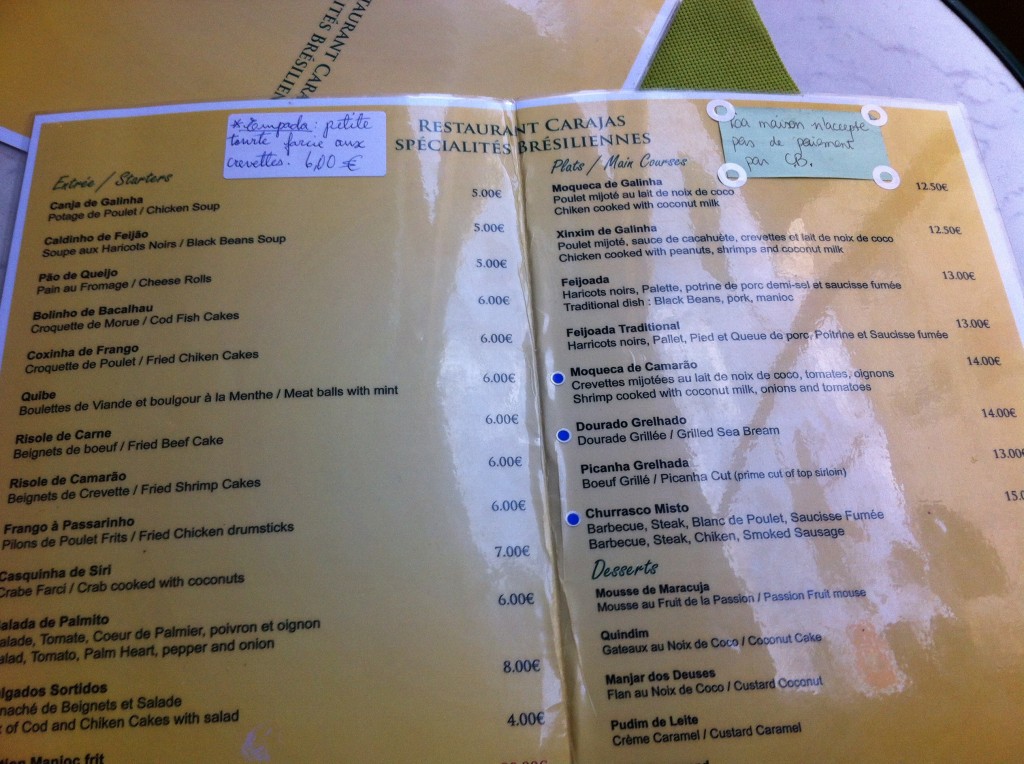 RESTAURANT CARA
ITÉS BRÉSILIEN
*Empada: petite
tourte farcie aux
crevettes. 6,00 €
RESTAURANT CARAJAS
SPÉCIALITÉS BRÉSILIENNES
La maison n'accepte
pas de paiement
par CB.
Entrée / Starters
Canja de Galinha 5.00€
Potage de Poulet / Chicken Soup
Caldinho de Feijão 5.00€
Soupe aux Haricots Noirs / Black Beans Soup
Pão de Queijo 5.00€
Pain au Fromage / Cheese Rolls
Bolinho de Bacalhau 6.00€
Croquette de Morue / Cod Fish Cakes
Coxinha de Frango 6.00€
Croquette de Poulet / Fried Chiken Cakes
Quibe 6.00€
Boulettes de Viande et boulgour à la Menthe / Meat balls with mint
Risole de Carne 6.00€
Beignets de boeuf / Fried Beef Cake
Risole de Camarão 6.00€
Beignets de Crevette / Fried Shrimp Cakes
Frango à Passarinho 6.00€
Pilons de Poulet Frits / Fried Chicken drumsticks
Casquinha de Siri 7.00€
Crabe Farci / Crab cooked with coconuts
Salada de Palmito 6.00€
alade, Tomate, Coeur de Palmier, poivron et oignon
alad, Tomato, Palm Heart, pepper and onion
lgados Sortidos 8.00€
naché de Beignets et Salade
x of Cod and Chiken Cakes with salad
tion Manioc frit 4.00€
Plats / Main Courses
Moqueca de Galinha 12.50€
Poulet mijoté au lait de noix de coco
Chiken cooked with coconut milk
Xinxim de Galinha 12.50€
Poulet mijoté, sauce de cacahuète, crevettes et lait de noix de coco
Chicken cooked with peanuts, shrimps and coconut milk
Feijoada 13.00€
Haricots noirs, Palette, potrine de porc demi-sel et saucisse fumée
Traditional dish : Black Beans, pork, manioc
Feijoada Traditional 13.00€
Harricots noirs, Pallet, Pied et Queue de porc, Poitrine et Saucisse fumée
Moqueca de Camarão 14.00€
Crevettes mijotées au lait de noix de coco, tomates, oignons
Shrimp cooked with coconut milk, onions and tomatoes
Dourado Grelhado 14.00€
Dourade Grillée / Grilled Sea Bream
Picanha Grelhada 13.00€
Boeuf Grillé / Picanha Cut (prime cut of top sirloin)
Churrasco Misto 15.0
Barbecue, Steak, Blanc de Poulet, Saucisse Fumée
Barbecue, Steak, Chiken, Smoked Sausage
Desserts
Mousse de Maracuja
Mousse au Fruit de la Passion / Passion Fruit mouse
Quindim
Gateaux au Noix de Coco / Coconut Cake
Manjar dos Deuses
Flan au Noix de Coco / Custard Coconut
Pudim de Leite
Crème Caramel / Custard Caramel